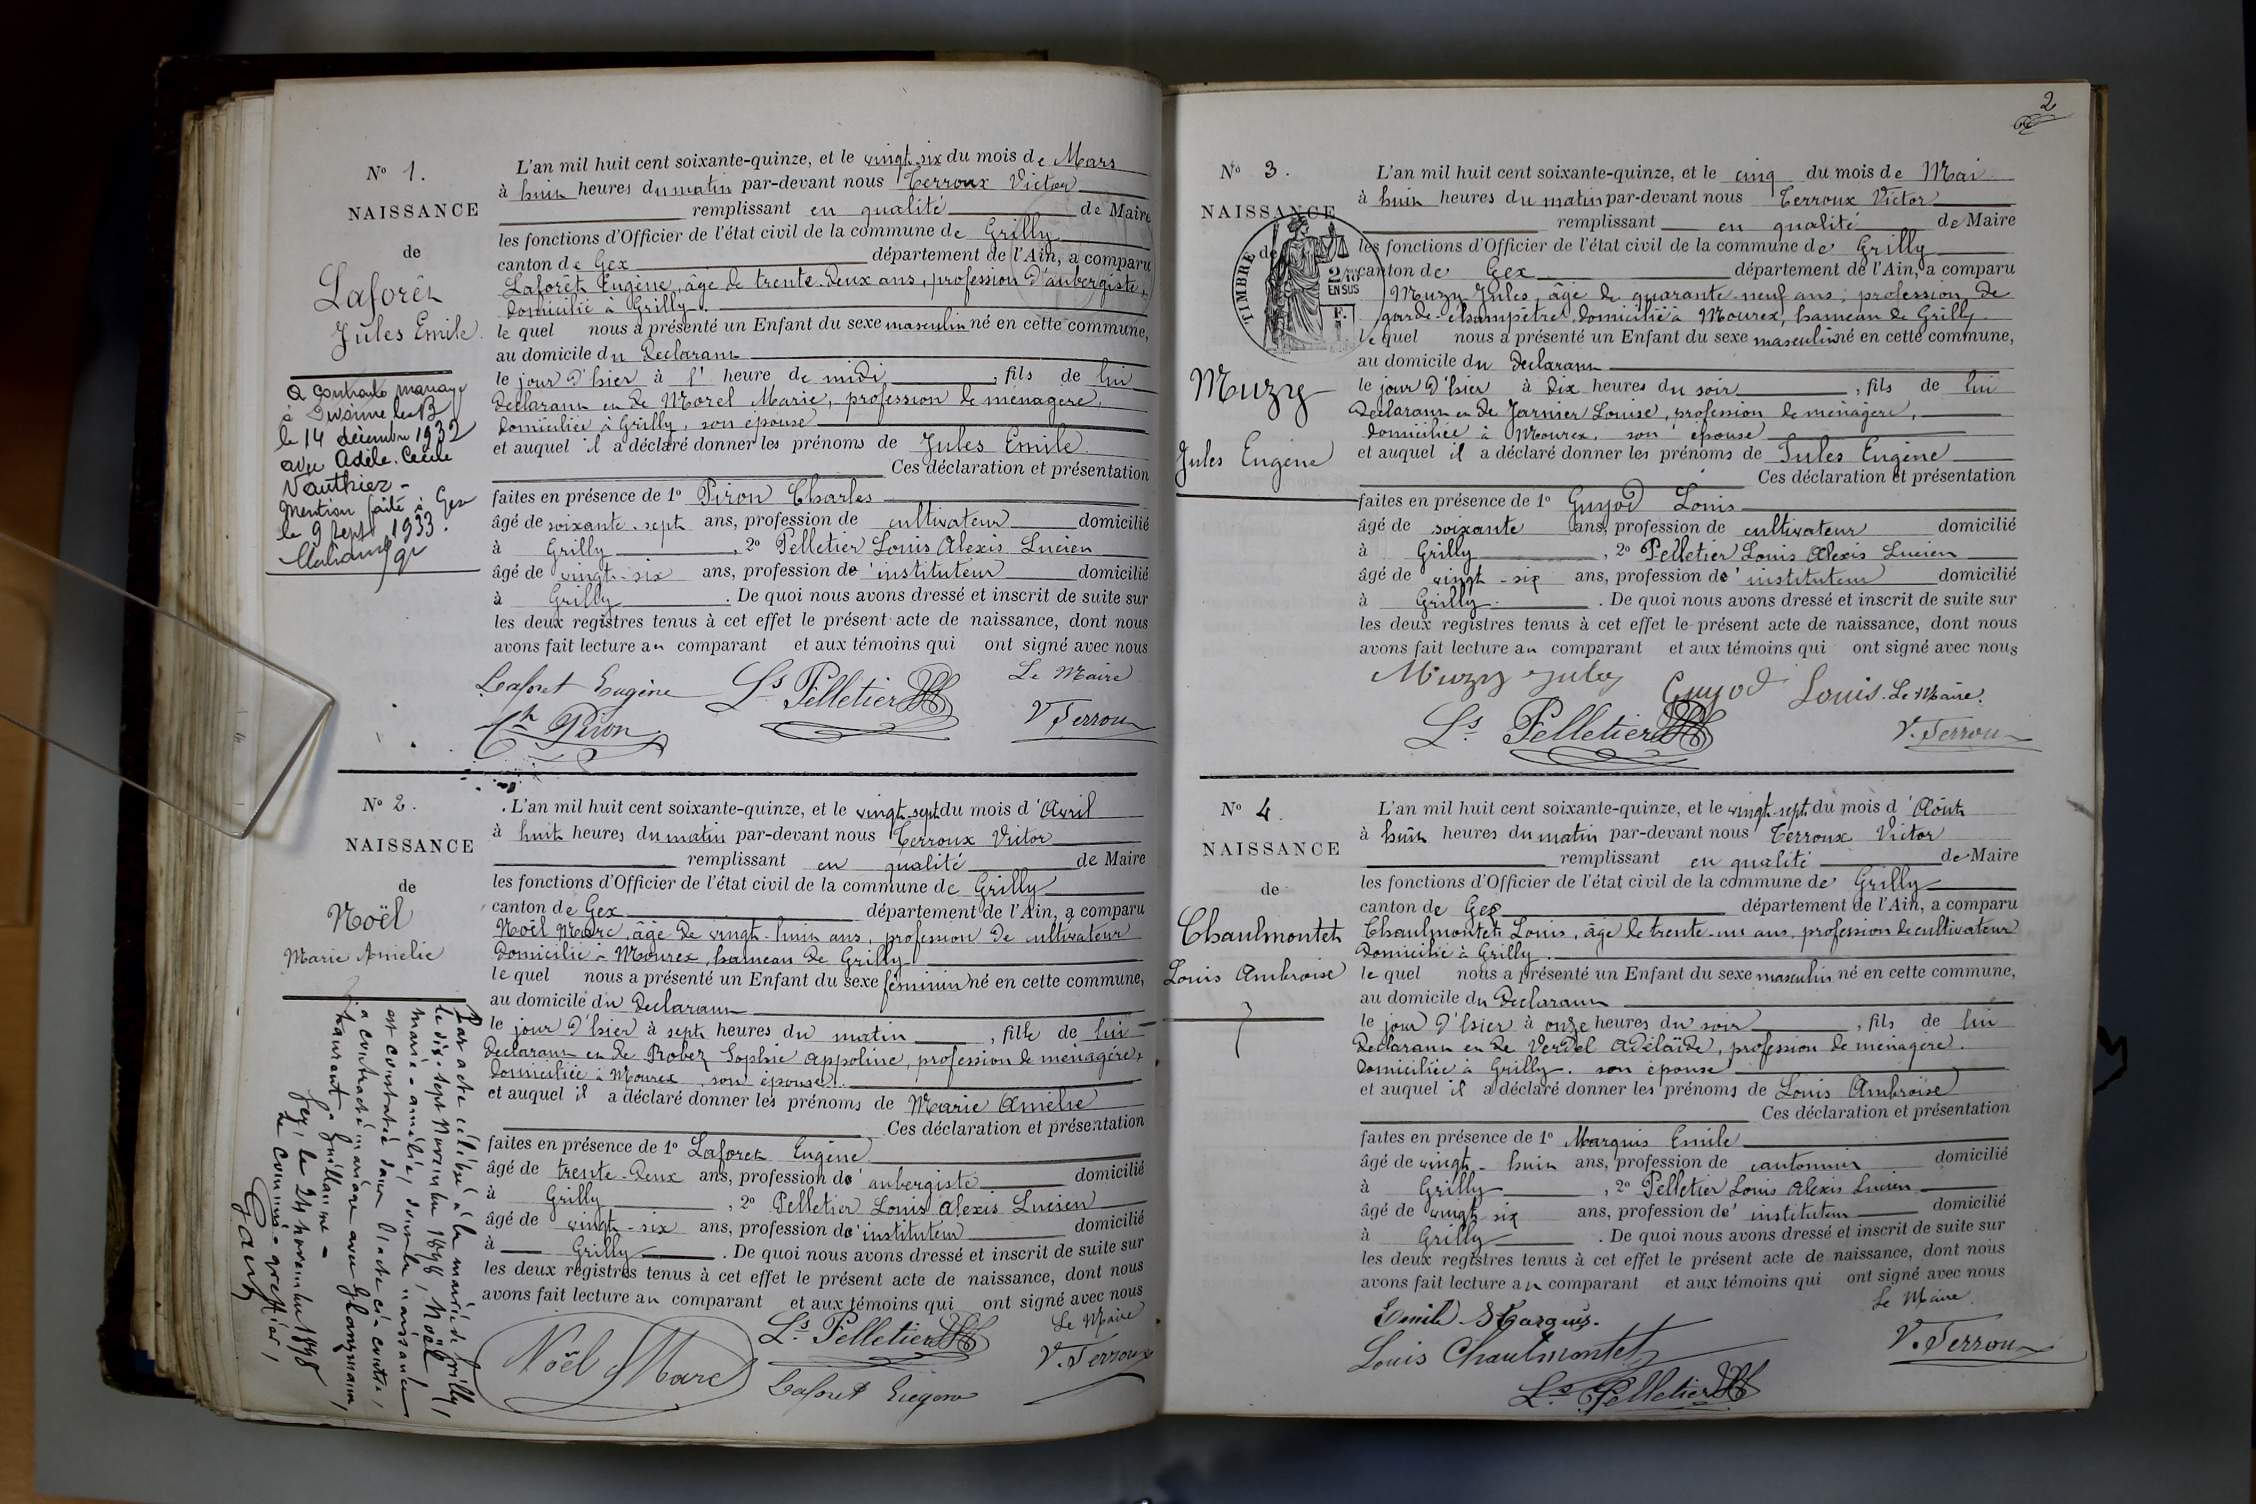 N° 1.
NAISSANCE
de
Laforêt
Jules Emile.
a contracté mariage
à Divonne les B
le 14 décembre 1932
avec Adèle. Cécile
Vauthier -
Mention faite à Gex
le 9 Sept 1933.
L'an mil huit cent soixante-quinze, et le vingt-six du mois de Mars
à huit heures du matin par-devant nous Terroux Victor
remplissant en qualité de Maire
les fonctions d'Officier de l'état civil de la commune de Grilly
canton de Gex département de l'Ain, a comparu
Laforêt Eugène, âgé de trente-deux ans, profession d'aubergiste,
domicilié à Grilly.
le quel nous a présenté un Enfant du sexe masculin né en cette commune,
au domicile du Déclarant
le jour d'hier à 1 heure de midi, fils de lui
déclarant et de Morel Marie, profession de ménagère,
domiciliée à Grilly, son épouse
et auquel il a déclaré donner les prénoms de Jules Emile.
Ces déclaration et présentation
faites en présence de 1° Piron Charles
âgé de soixante-sept ans, profession de cultivateur domicilié
à Grilly, 2° Pelletier Louis Alexis Lucien
âgé de vingt-six ans, profession d'instituteur domicilié
à Grilly. De quoi nous avons dressé et inscrit de suite sur
les deux registres tenus à cet effet le présent acte de naissance, dont nous
avons fait lecture au comparant et aux témoins qui ont signé avec nous
Le Maire
Laforet Eugène Ls Pelletier
Ch Piron V. Terroux
N° 2.
NAISSANCE
de
Noël
Marie Amélie
Par acte célébré à la mairie de Grilly,
le dix-sept Novembre 1898, Noël
marie-amélie, dont la naissance
est constatée dans l'acte ci-contre,
a contracté mariage avec
Gex, le 24 novembre 1898
Le commis-greffier,
L'an mil huit cent soixante-quinze, et le vingt-sept du mois d'Avril
à huit heures du matin par-devant nous Terroux Victor
remplissant en qualité de Maire
les fonctions d'Officier de l'état civil de la commune de Grilly
canton de Gex département de l'Ain, a comparu
Noël Marc, âgé de vingt-huit ans, profession de cultivateur
domicilié à Mourex, hameau de Grilly
le quel nous a présenté un Enfant du sexe féminin né en cette commune,
au domicile du Déclarant
le jour d'hier à sept heures du matin, fille de lui
Déclarant et de Robez Sophie Appoline, profession de ménagère,
domiciliée à Mourex, son épouse.
et auquel il a déclaré donner les prénoms de Marie Amélie
Ces déclaration et présentation
faites en présence de 1° Laforet Eugène
âgé de trente-deux ans, profession d'aubergiste domicilié
à Grilly, 2° Pelletier Louis Alexis Lucien
âgé de vingt-six ans, profession d'instituteur domicilié
à Grilly. De quoi nous avons dressé et inscrit de suite sur
les deux registres tenus à cet effet le présent acte de naissance, dont nous
avons fait lecture au comparant et aux témoins qui ont signé avec nous
Le Maire
Noël Marc Ls Pelletier V. Terroux
Laforet Eugène
2
N° 3.
NAISSANCE
de
TIMBRE
Muzy
Jules Eugène
L'an mil huit cent soixante-quinze, et le cinq du mois de Mai
à huit heures du matin par-devant nous Terroux Victor
remplissant en qualité de Maire
les fonctions d'Officier de l'état civil de la commune de Grilly
canton de Gex département de l'Ain, a comparu
Muzy Jules, âgé de quarante-neuf ans, profession de
garde-champêtre, domicilié à Mourex, hameau de Grilly.
le quel nous a présenté un Enfant du sexe masculin né en cette commune,
au domicile du Déclarant
le jour d'hier à dix heures du soir, fils de lui
Déclarant et de Jarnier Louise, profession de ménagère,
domiciliée à Mourex, son épouse
et auquel il a déclaré donner les prénoms de Jules Eugène
Ces déclaration et présentation
faites en présence de 1° Guyod Louis
âgé de soixante ans, profession de cultivateur domicilié
à Grilly, 2° Pelletier Louis Alexis Lucien
âgé de vingt-six ans, profession d'instituteur domicilié
à Grilly. De quoi nous avons dressé et inscrit de suite sur
les deux registres tenus à cet effet le présent acte de naissance, dont nous
avons fait lecture au comparant et aux témoins qui ont signé avec nous
Muzy Jules Guyod Louis. Le Maire.
Ls Pelletier V. Terroux
N° 4.
NAISSANCE
de
Chaulmontet
Louis Ambroise
L'an mil huit cent soixante-quinze, et le vingt-sept du mois d'Août
à huit heures du matin par-devant nous Terroux Victor
remplissant en qualité de Maire
les fonctions d'Officier de l'état civil de la commune de Grilly
canton de Gex département de l'Ain, a comparu
Chaulmontet Louis, âgé de trente-un ans, profession de cultivateur
domicilié à Grilly.
le quel nous a présenté un Enfant du sexe masculin né en cette commune,
au domicile du Déclarant
le jour d'hier à onze heures du soir, fils de lui
Déclarant et de Verdel Adélaïde, profession de ménagère.
domiciliée à Grilly. son épouse
et auquel il a déclaré donner les prénoms de Louis Ambroise
Ces déclaration et présentation
faites en présence de 1° Marquis Emile
âgé de vingt-huit ans, profession de cantonnier domicilié
à Grilly, 2° Pelletier Louis Alexis Lucien
âgé de vingt six ans, profession d'instituteur domicilié
à Grilly. De quoi nous avons dressé et inscrit de suite sur
les deux registres tenus à cet effet le présent acte de naissance, dont nous
avons fait lecture au comparant et aux témoins qui ont signé avec nous
Le Maire.
Emile Marquis.
Louis Chaulmontet V. Terroux
Ls Pelletier